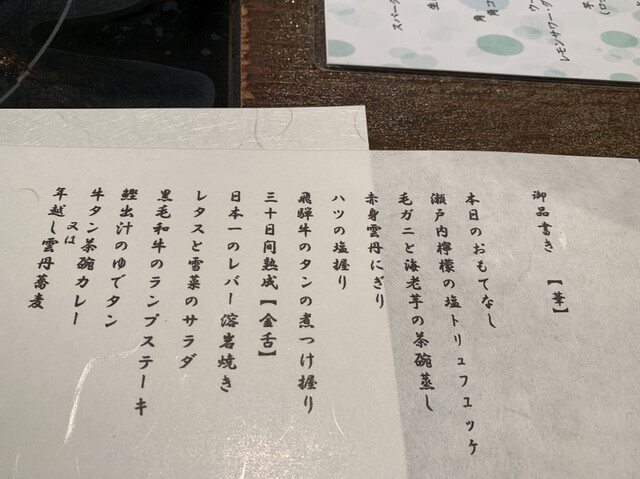 御品書き 【華】
本日のおもてなし
瀬戸内檸檬の塩トリュフユッケ
毛ガニと海老芋の茶碗蒸し
赤身雲丹にぎり
ハツの塩握り
飛騨牛のタンの煮つけ握り
三十日間熟成【金舌】
日本一のレバー溶岩焼き
レタスと雪菜のサラダ
黒毛和牛のランプステーキ
鰹出汁のゆでタン
牛タン茶碗カレー
又は
年越し雲丹蕎麦
レモンサワー